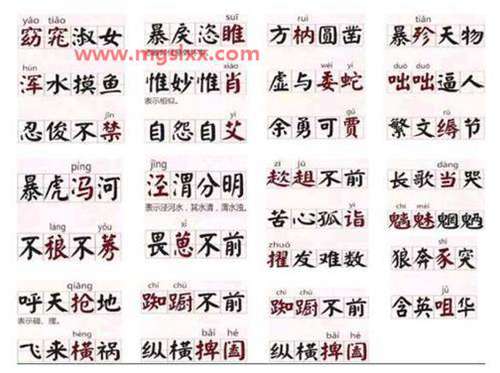 yǎo tiǎo
窈窕淑女
suī
暴戾恣睢
ruì
方枘圆凿
tiǎn
暴殄天物
www.mgslxx.com
hún
浑水摸鱼
xiào
惟妙惟肖
表示相似。
wēi yí
虚与委蛇
duō duō
咄咄逼人
忍俊不禁
yì
自怨自艾
gǔ
余勇可贾
繁文缛节
píng
暴虎冯河
jīng
泾渭分明
表示泾河水，其水清，渭水浊。
zī jū
趑趄不前
dàng
长歌当哭
yǒu
不稂不莠
xǐ
畏葸不前
苦心孤诣
魑魅魍魉
zhuó
擢发难数
狼奔豕突
qiāng
呼天抢地
表示碰、撞。
chí chú
踟蹰不前
chí chú
踟蹰不前
含英咀华
hèng
飞来横祸
bǎi hé
纵横捭阖
bǎi hé
纵横捭阖